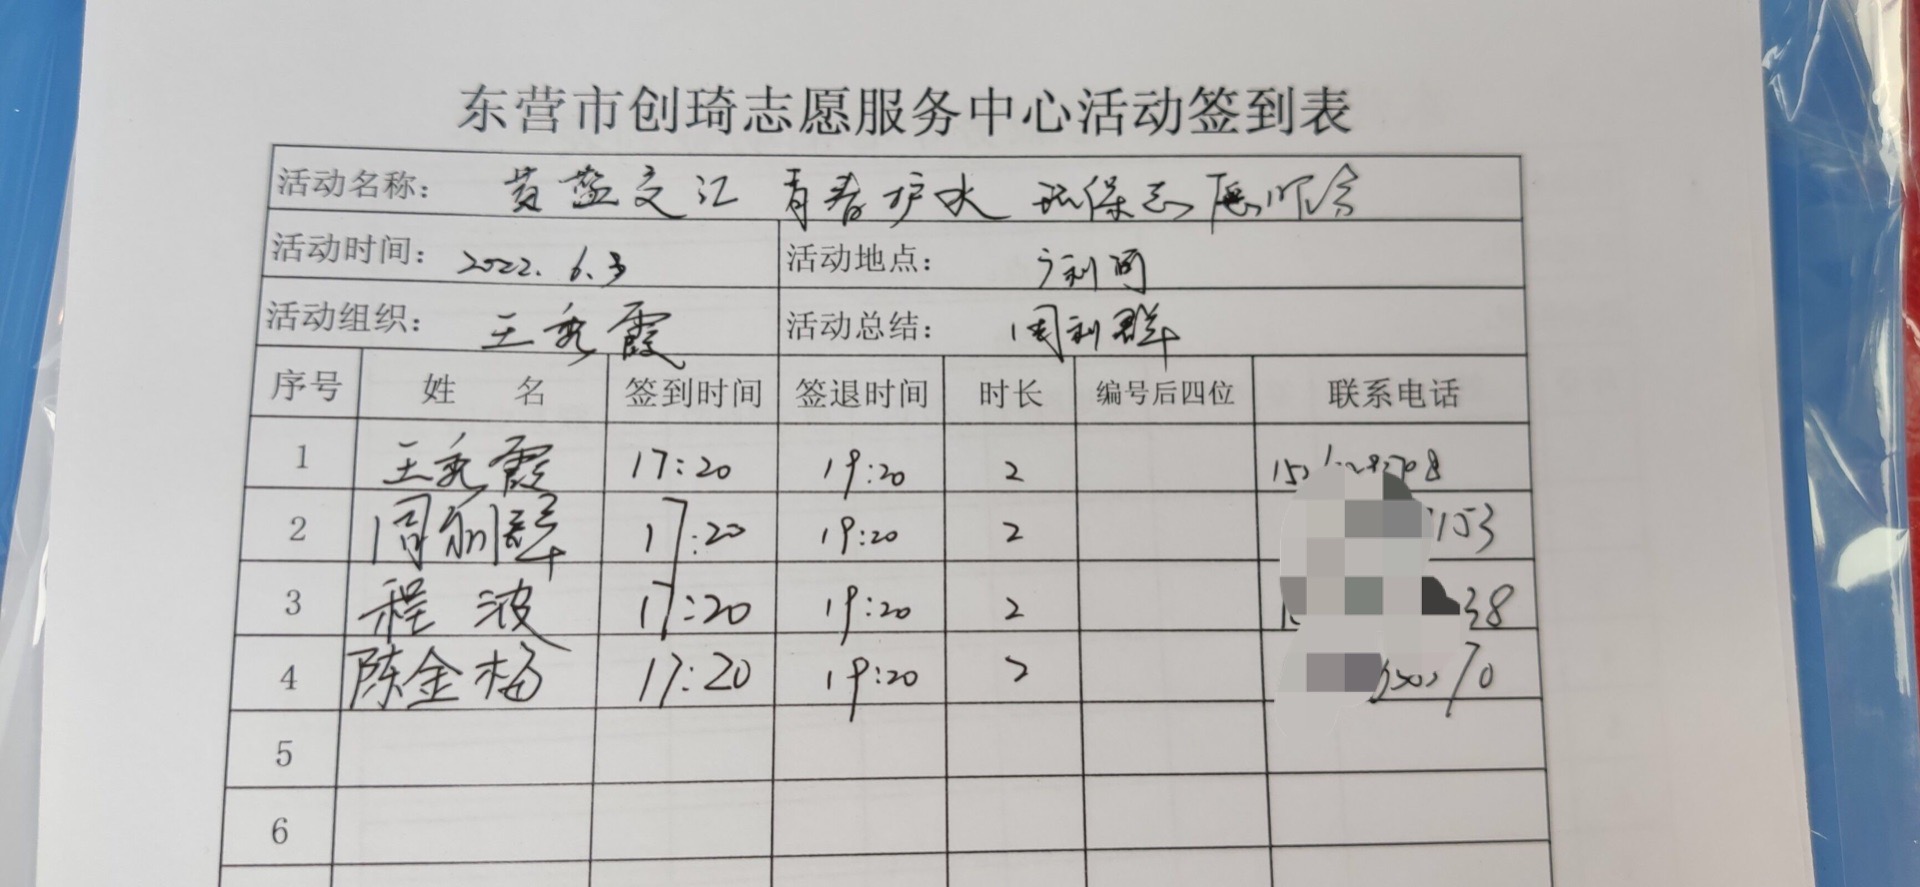 东营市创琦志愿服务中心活动签到表
活动名称： 黄蓝交汇 青春护水 环保志愿服务
活动时间： 2022.6.3 活动地点： 广利河
活动组织： 王秀霞 活动总结： 周利群
序号 姓 名 签到时间 签退时间 时长 编号后四位 联系电话
1 王秀霞 17:20 19:20 2
2 周利群 17:20 19:20 2 153
3 程波 17:20 19:20 2 38
4 陈金梅 17:20 19:20 2 70
5
6